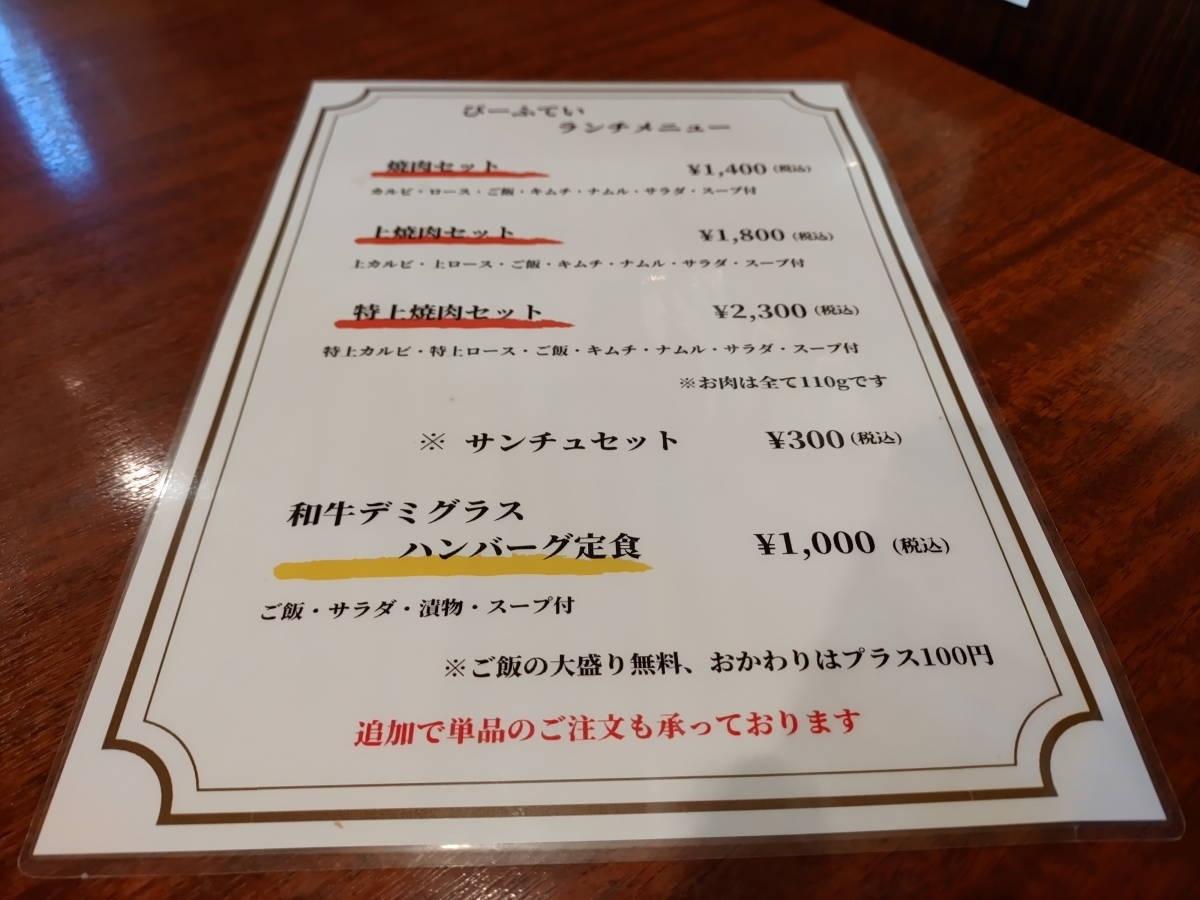 びーふてい
ランチメニュー
焼肉セット ¥1,400(税込)
カルビ・ロース・ご飯・キムチ・ナムル・サラダ・スープ付
上焼肉セット ¥1,800(税込)
上カルビ・上ロース・ご飯・キムチ・ナムル・サラダ・スープ付
特上焼肉セット ¥2,300(税込)
特上カルビ・特上ロース・ご飯・キムチ・ナムル・サラダ・スープ付
※お肉は全て110gです
※ サンチュセット ¥300(税込)
和牛デミグラス
ハンバーグ定食 ¥1,000 (税込)
ご飯・サラダ・漬物・スープ付
※ご飯の大盛り無料、おかわりはプラス100円
追加で単品のご注文も承っております